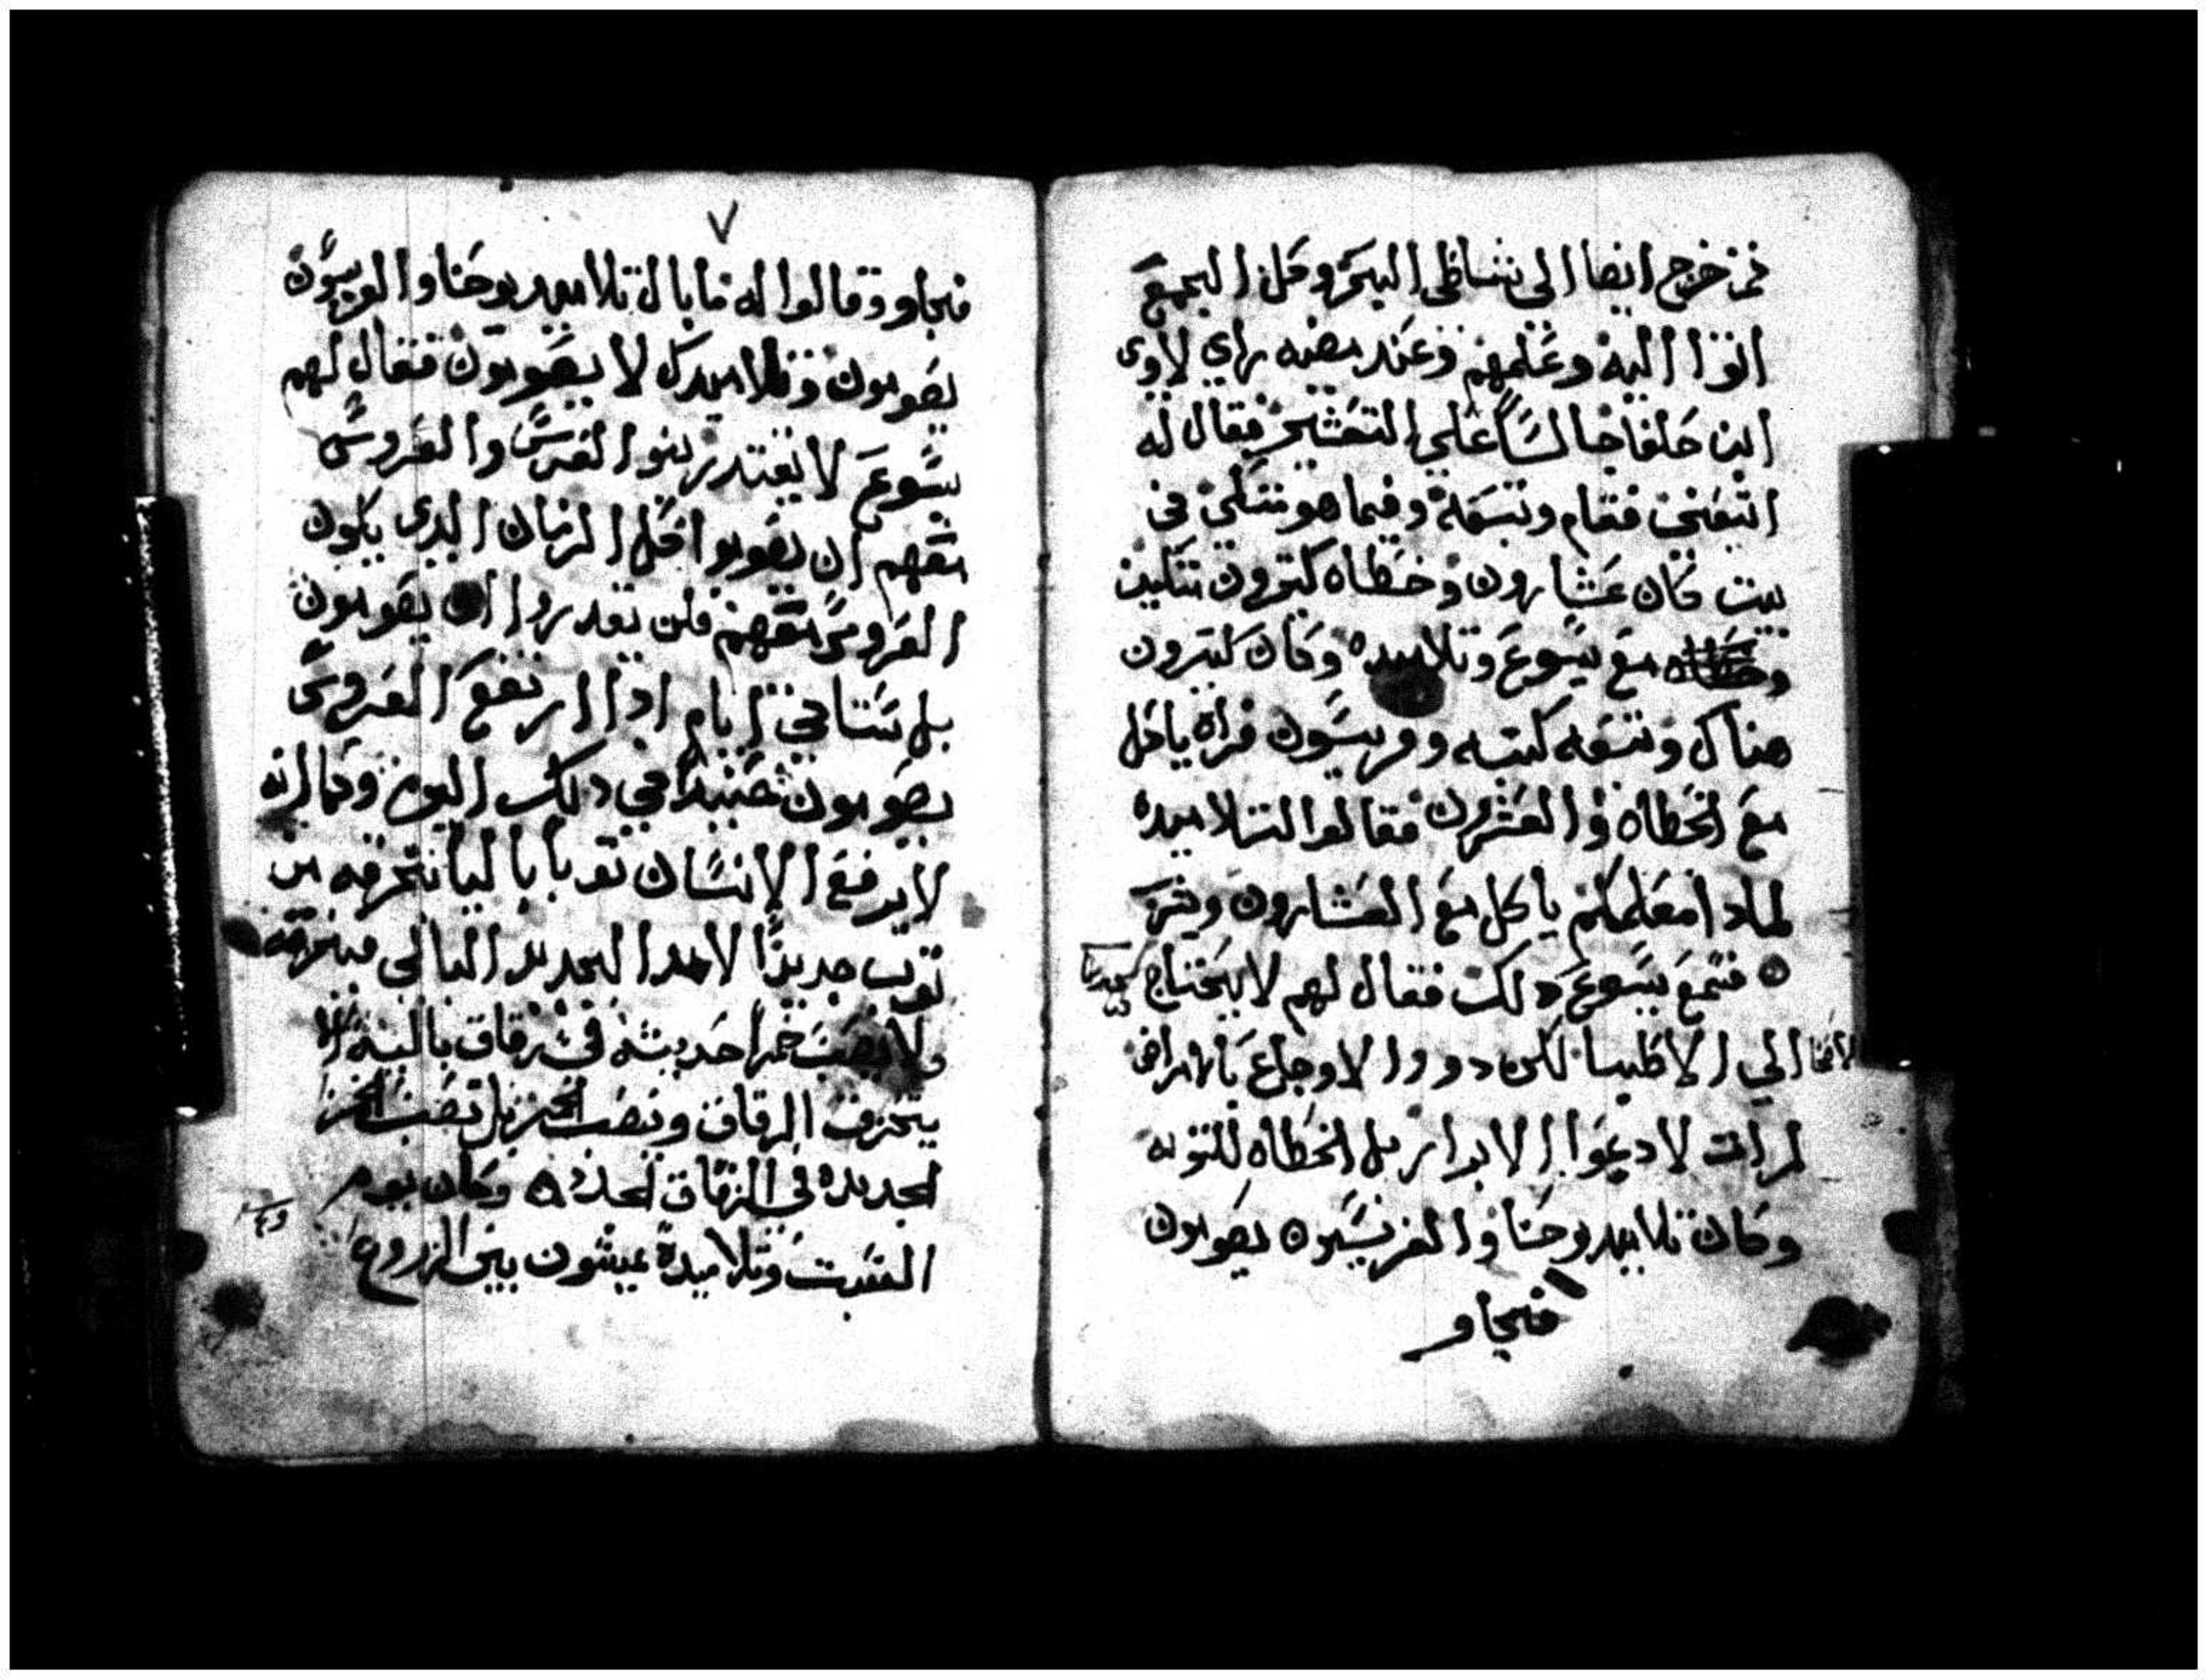 ثم خرج ايضا الى شاطى البحر وكل الجمع
اتوا اليه وعلمهم وعند مضيه راي لاوى
ابن حلفا جالسًا على التعشير فقال له
اتبعني فقام وتبعه وفيما هو متكي في
بيت كان عشارون وخطاه كتيرون متكين
مع يسوع وتلاميده وكان كتيرون
هناك وتبعه كتبه وفريسيون فراه ياكل
مع الخطاه والعشرون فقالوا لتلاميده
لمادا معلمكم ياكل مع العشارون ويشرب
فسمع يسوع دلك فقال لهم لا يحتاج
الاصحا الي الاطبا لكن دووا الاوجاع
لم ات لادعوا الابرار بل الخطاه للتوبه
وكان تلاميد يوحنا والفريسيون يصومون
فيجاو
٧
فيجاو وقالوا له ما بال تلاميد يوحنا والفريسيون
يصومون وتلاميدك لا يصومون فقال لهم
يسوع لا يقتدر بنوا العرس والعروس
معهم ان يصوموا كل الزمان الدى يكون
العروس معهم فلن يقدروا ان يصومون
بل ستاتي ايام ادا ارتفع العروس
يصومون حينيدًا في دلك اليوم وكما انه
لا يرفع الانسان توبا باليا بخرقه من
توب جديدًا الجديد البالي فيخرقه
ولا يصب خمرا حديثه في زقاق باليه لالا
يتخرق الزقاق وينصب الخمر بل تصب الخمر
الجديده في الزقاق الجدد ه وكان يوم
السبت وتلاميده يمشون بين الزروع